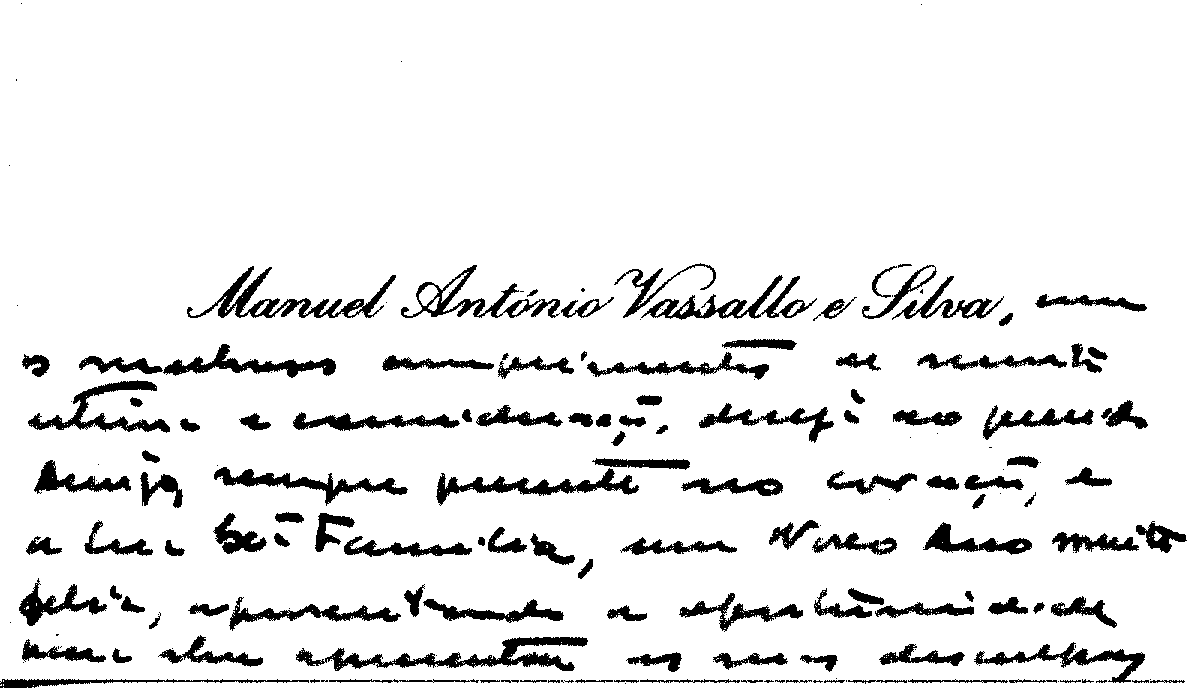 Manuel António Vassallo e Silva, com
os melhores cumprimentos de muita
estima e consideração, deseja ao querido
Amigo, sempre presente no coração, e
a sua boa Família, um Novo Ano muito
feliz, aproveitando a oportunidade
para apresentar as suas desculpas